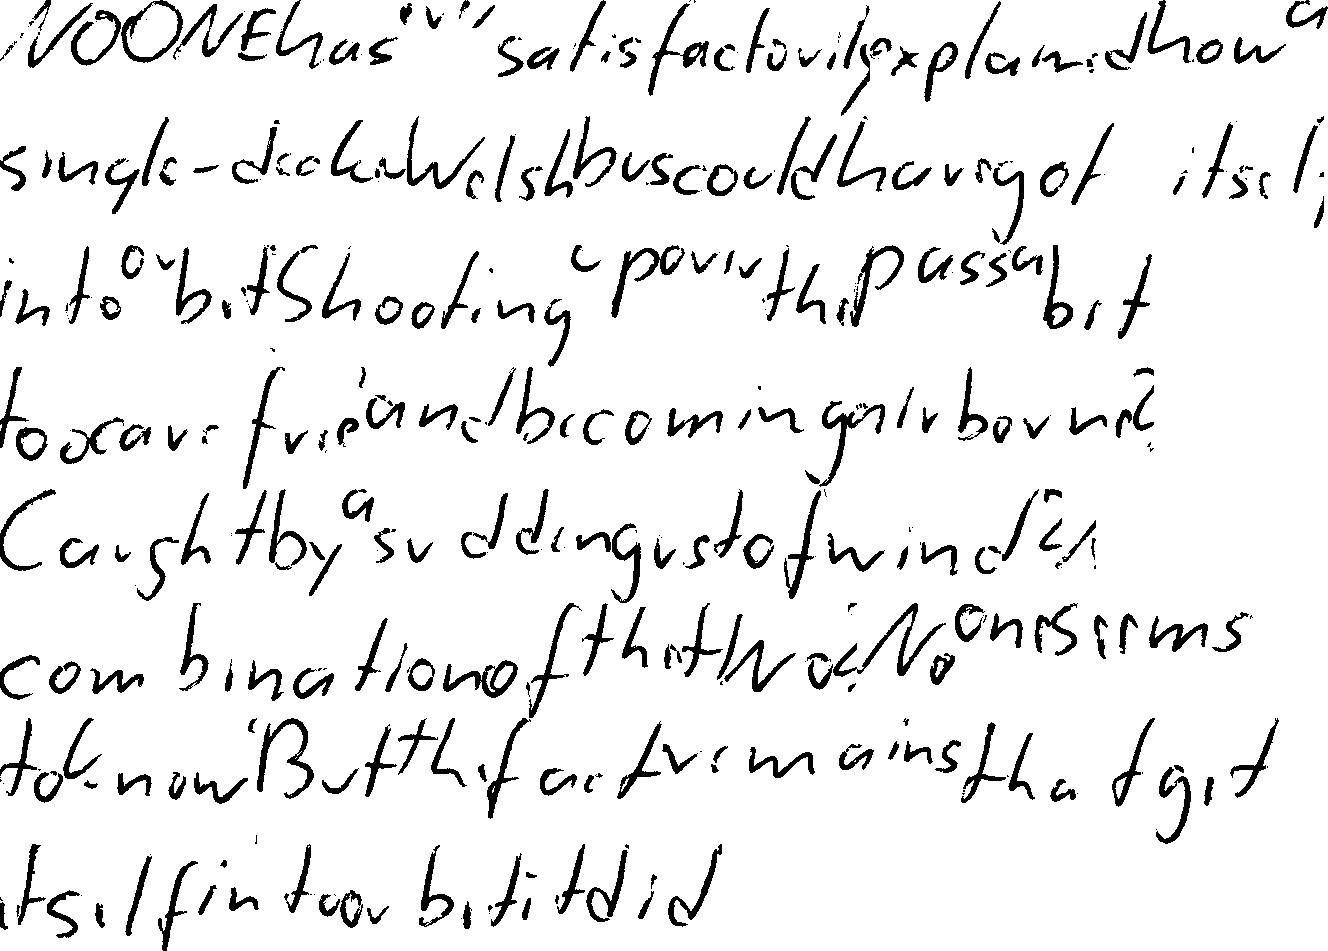 NO ONE has ever satisfactorily explained how a
single-decker Welsh bus could have got itself
into orbit. Shooting up over the pass a bit
too carefree and becoming airborne?
Caught by a sudden gust of wind? A
combination of the two? No one seems
to know. But the fact remains that get
itself into orbit it did